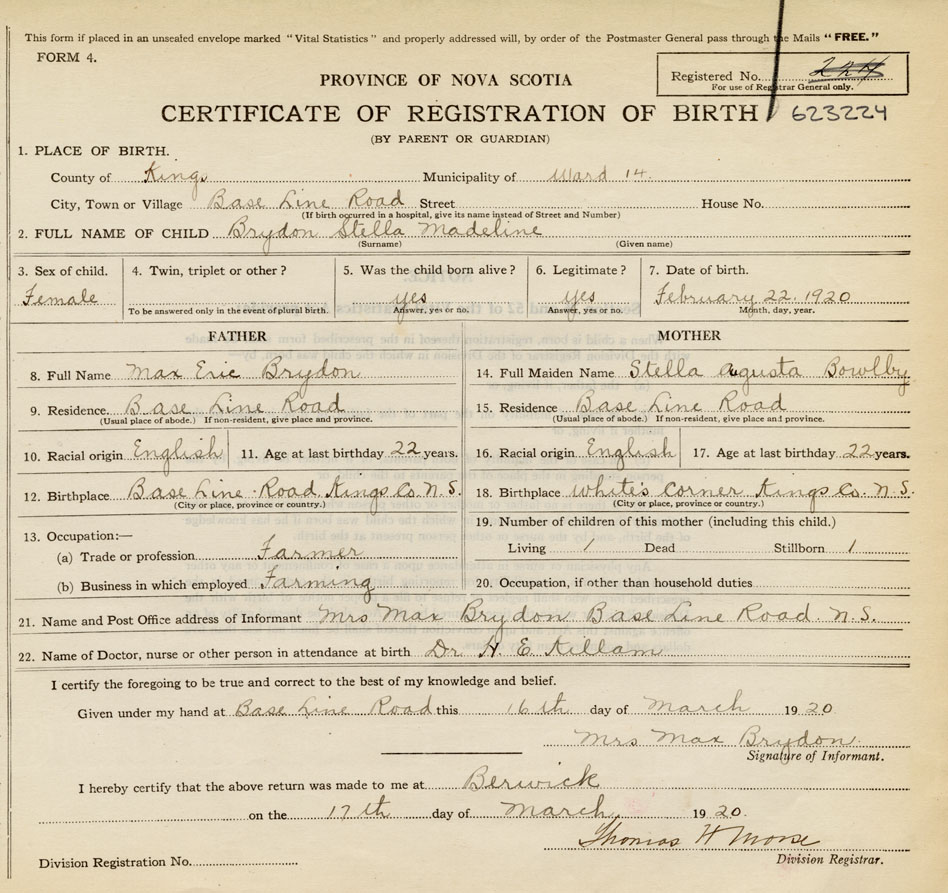 This form if placed in an unsealed envelope marked "Vital Statistics" and properly addressed will, by order of the Postmaster General pass through the Mails "FREE."
FORM 4.
PROVINCE OF NOVA SCOTIA
Registered No. 224
For use of Registrar General only.
CERTIFICATE OF REGISTRATION OF BIRTH 623224
(BY PARENT OR GUARDIAN)
1. PLACE OF BIRTH.
County of Kings Municipality of Ward 14.
City, Town or Village Base Line Road Street House No.
(If birth occurred in a hospital, give its name instead of Street and Number)
2. FULL NAME OF CHILD Brydon Stella Madeline
(Surname) (Given name)
3. Sex of child. 4. Twin, triplet or other? 5. Was the child born alive? 6. Legitimate? 7. Date of birth.
Female yes yes February 22. 1920
To be answered only in the event of plural birth. Answer, yes or no. Answer, yes or no. Month, day, year.
FATHER MOTHER
8. Full Name Max Eric Brydon 14. Full Maiden Name Stella Augusta Bowlby
9. Residence. Base Line Road 15. Residence Base Line Road
(Usual place of abode.) If non-resident, give place and province. (Usual place of abode.) If non-resident, give place and province.
10. Racial origin English 11. Age at last birthday 22 years. 16. Racial origin English 17. Age at last birthday 22 years.
12. Birthplace Base Line Road. Kings Co. N. S. 18. Birthplace Whites Corner Kings Co. N. S.
(City or place, province or country.) (City or place, province or country.)
13. Occupation:— 19. Number of children of this mother (including this child.)
(a) Trade or profession Farmer Living 1 Dead Stillborn 1
(b) Business in which employed Farming 20. Occupation, if other than household duties
21. Name and Post Office address of Informant Mrs Max Brydon Base Line Road. N.S.
22. Name of Doctor, nurse or other person in attendance at birth Dr. H. E. Killam
I certify the foregoing to be true and correct to the best of my knowledge and belief.
Given under my hand at Base Line Road this 16th day of March 1920
Mrs Max Brydon.
Signature of Informant.
I hereby certify that the above return was made to me at Berwick
on the 17th day of March 1920.
Thomas H Morse
Division Registrar.
Division Registration No.